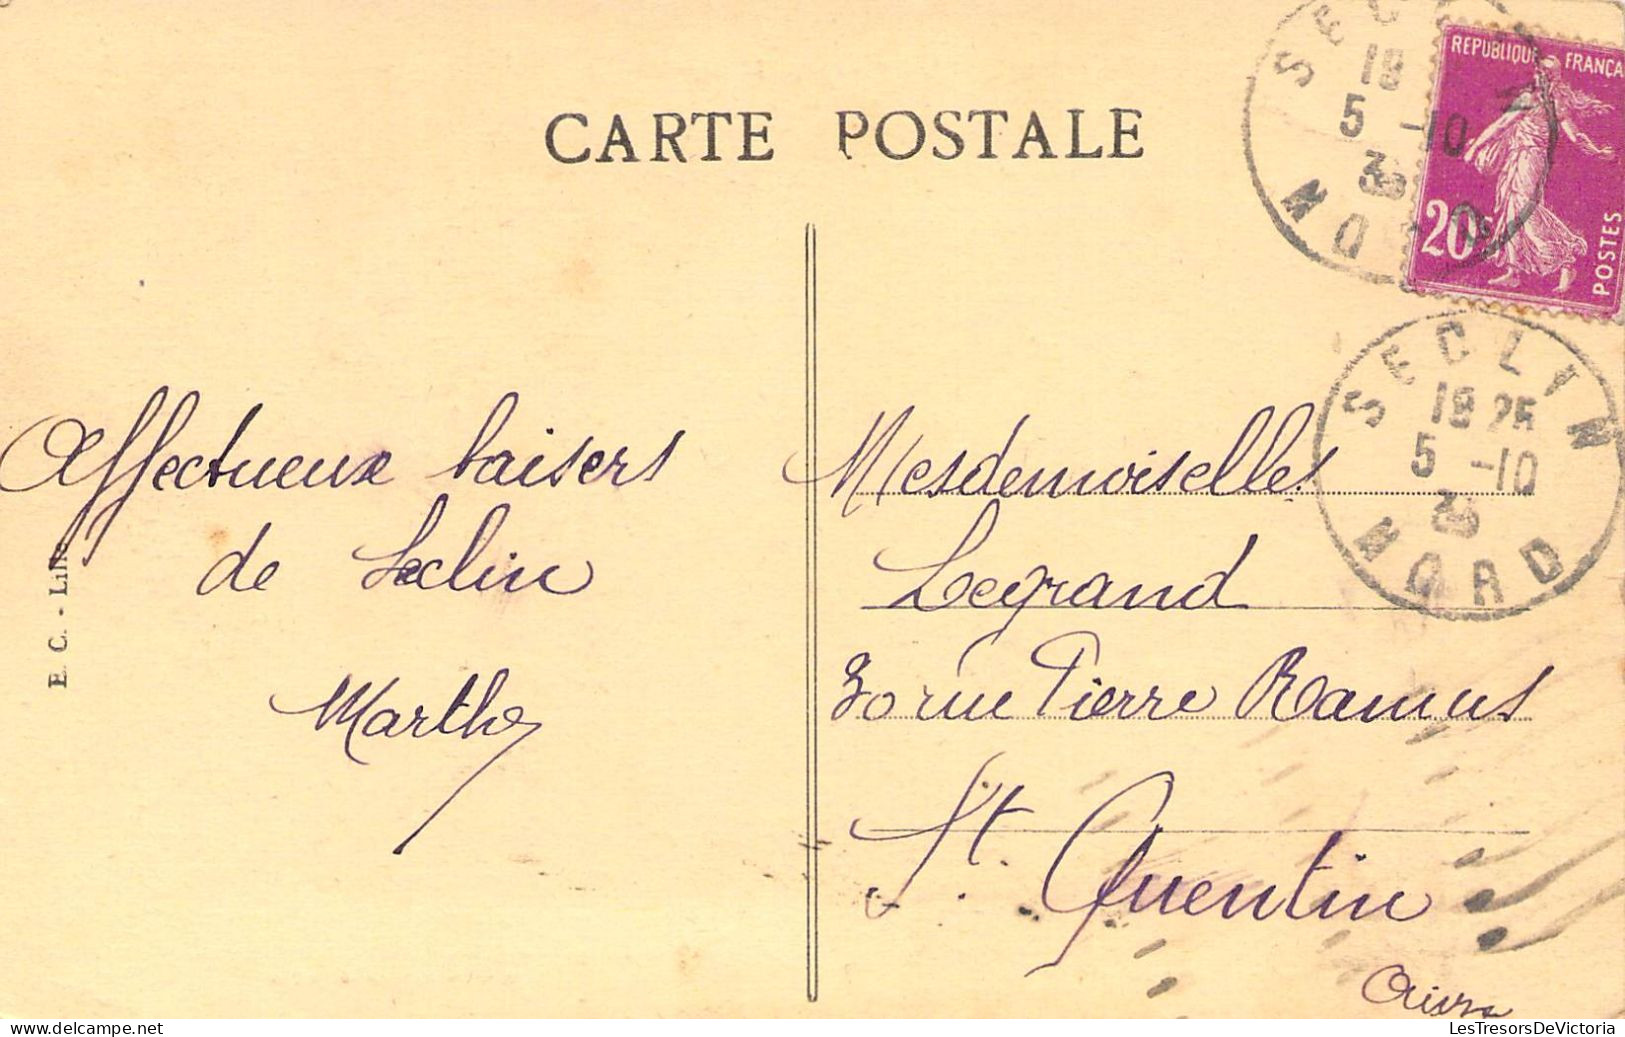 CARTE POSTALE
Affectueux baisers
de Seclin
Marthe
E. C. - Lille
REPUBLIQUE FRANÇA
20c
POSTES
SECLIN
18
5 -10
36
NORD
SECLIN
18 25
5 -10
36
NORD
Mesdemoiselles
Legrand
30 rue Pierre Ramus
St. Quentin
Aisne
LesTresorsDeVictoria
www.delcampe.net